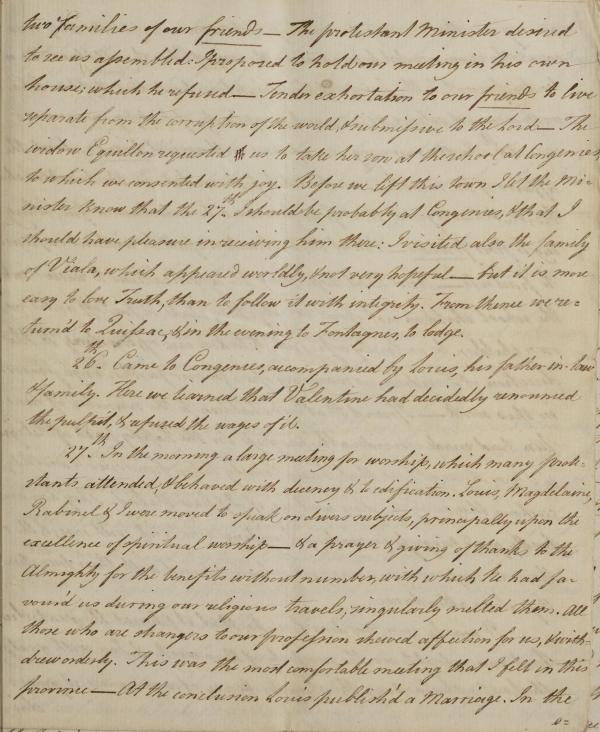 two families of our friends — The protestant Minister desired
to see us assembled: I proposed to hold our meeting in his own
house; which he refused — Tender exhortation to our friends to live
separate from the corruption of the world, & submissive to the Lord — The
widow Equillon requested us to take her son at the school at Congenies,
to which we consented with joy. Before we left this town I let the Mi-
nister know that the 27th. I should be probably at Congenies, & that I
should have pleasure in receiving him there: I visited also the family
of Viala, which appeared worldly, & not very hopeful — but it is more
easy to love Truth, than to follow it with integrity. From thence we re=
turn'd to Quissac, & in the evening to Fontagnes, to lodge.
26th. Came to Congenies, accompanied by Louis, his father-in-law
& family. Here we learned that Valentine had decidedly renounced
the pulpit, & refused the wages of it.
27th. In the morning a large meeting for worship, which many prote-
stants attended, & behaved with decency & to edification. Louis, Magdelaine,
Rabinel & I were moved to speak on divers subjects, principally upon the
excellence of spiritual worship — & a prayer & giving of thanks to the
Almighty for the benefits without number, with which he had fa-
vour'd us during our religious travels, singularly melted them. All
those who are strangers to our profession shewed affection for us, & with-
drew orderly. This was the most comfortable meeting that I felt in this
province — At the conclusion Louis publish'd a Marriage. In the
e=